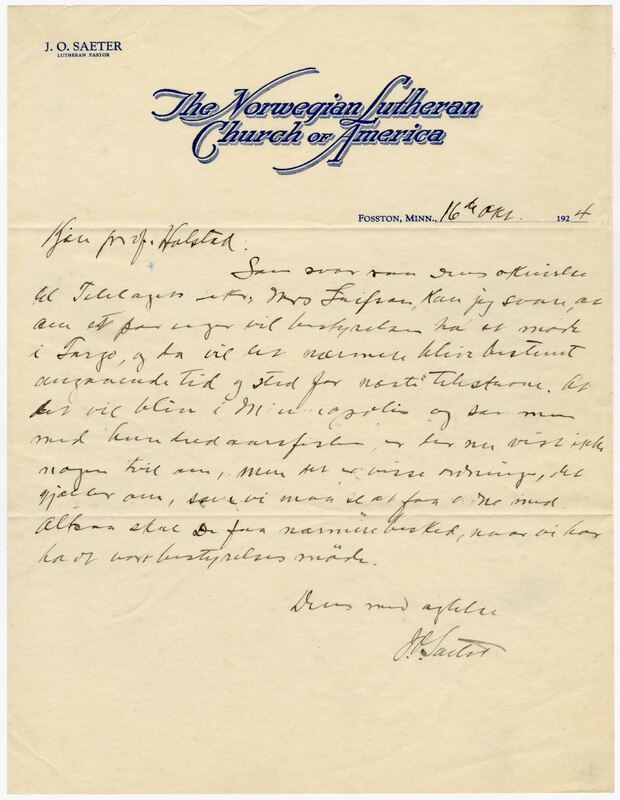 J. O. SAETER
LUTHERAN PASTOR
The Norwegian Lutheran
Church of America
FOSSTON, MINN., 16de Okt. 1924
Kjære prof. Holstad.
Som svar paa Deres
til Telelagets sekr. Mrs kan jeg svare, at
om et par uger vil bestyrelsen ha et møde
i Fargo, og da vil det nærmere blive bestemt
angaaende tid og sted for næste telestevne. At
det vil bli i Minneapolis og sammen
med hundredaarsfesten er der nu vist ikke
nogen tvil om, men det er visse ordninger, det
gjælder om, som vi maa se at faa ordne med.
Altsaa skal De faa nærmere besked, naar vi har
hat vort bestyrelsesmøde.
Deres med agtelse
J.O. Saeter